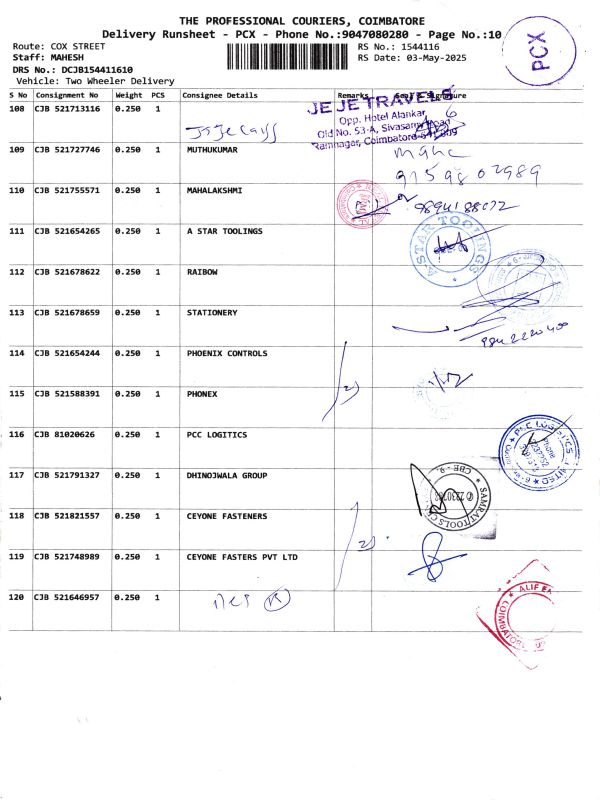 THE PROFESSIONAL COURIERS, COIMBATORE
Delivery Runsheet - PCX - Phone No.:9047080280 - Page No.:10
Route: COX STREET
RS No.: 1544116
Staff: MAHESH
RS Date: 03-May-2025
DRS No.: DCJB154411610
Vehicle: Two Wheeler Delivery
PCX
S No Consignment No Weight PCS Consignee Details Remarks Seal & Signature
108 CJB 521713116 0.250 1
JEJE TRAVELS
Opp. Hotel Alankar,
Old No. 53-A, Sivasamy Road
Ramnagar, Coimbatore-641009
109 CJB 521727746 0.250 1 MUTHUKUMAR
9159802989
110 CJB 521755571 0.250 1 MAHALAKSHMI
9894188072
111 CJB 521654265 0.250 1 A STAR TOOLINGS
A STAR TOOLINGS
112 CJB 521678622 0.250 1 RAIBOW
113 CJB 521678659 0.250 1 STATIONERY
9842220400
114 CJB 521654244 0.250 1 PHOENIX CONTROLS
115 CJB 521588391 0.250 1 PHONEX
2)
116 CJB 81020626 0.250 1 PCC LOGITICS
PCC LOGISTICS
117 CJB 521791327 0.250 1 DHINOJWALA GROUP
SAMRAT TOOLS
CBE - 9
118 CJB 521821557 0.250 1 CEYONE FASTENERS
2)
119 CJB 521748989 0.250 1 CEYONE FASTERS PVT LTD
120 CJB 521646957 0.250 1
ALIF
COIMBATORE